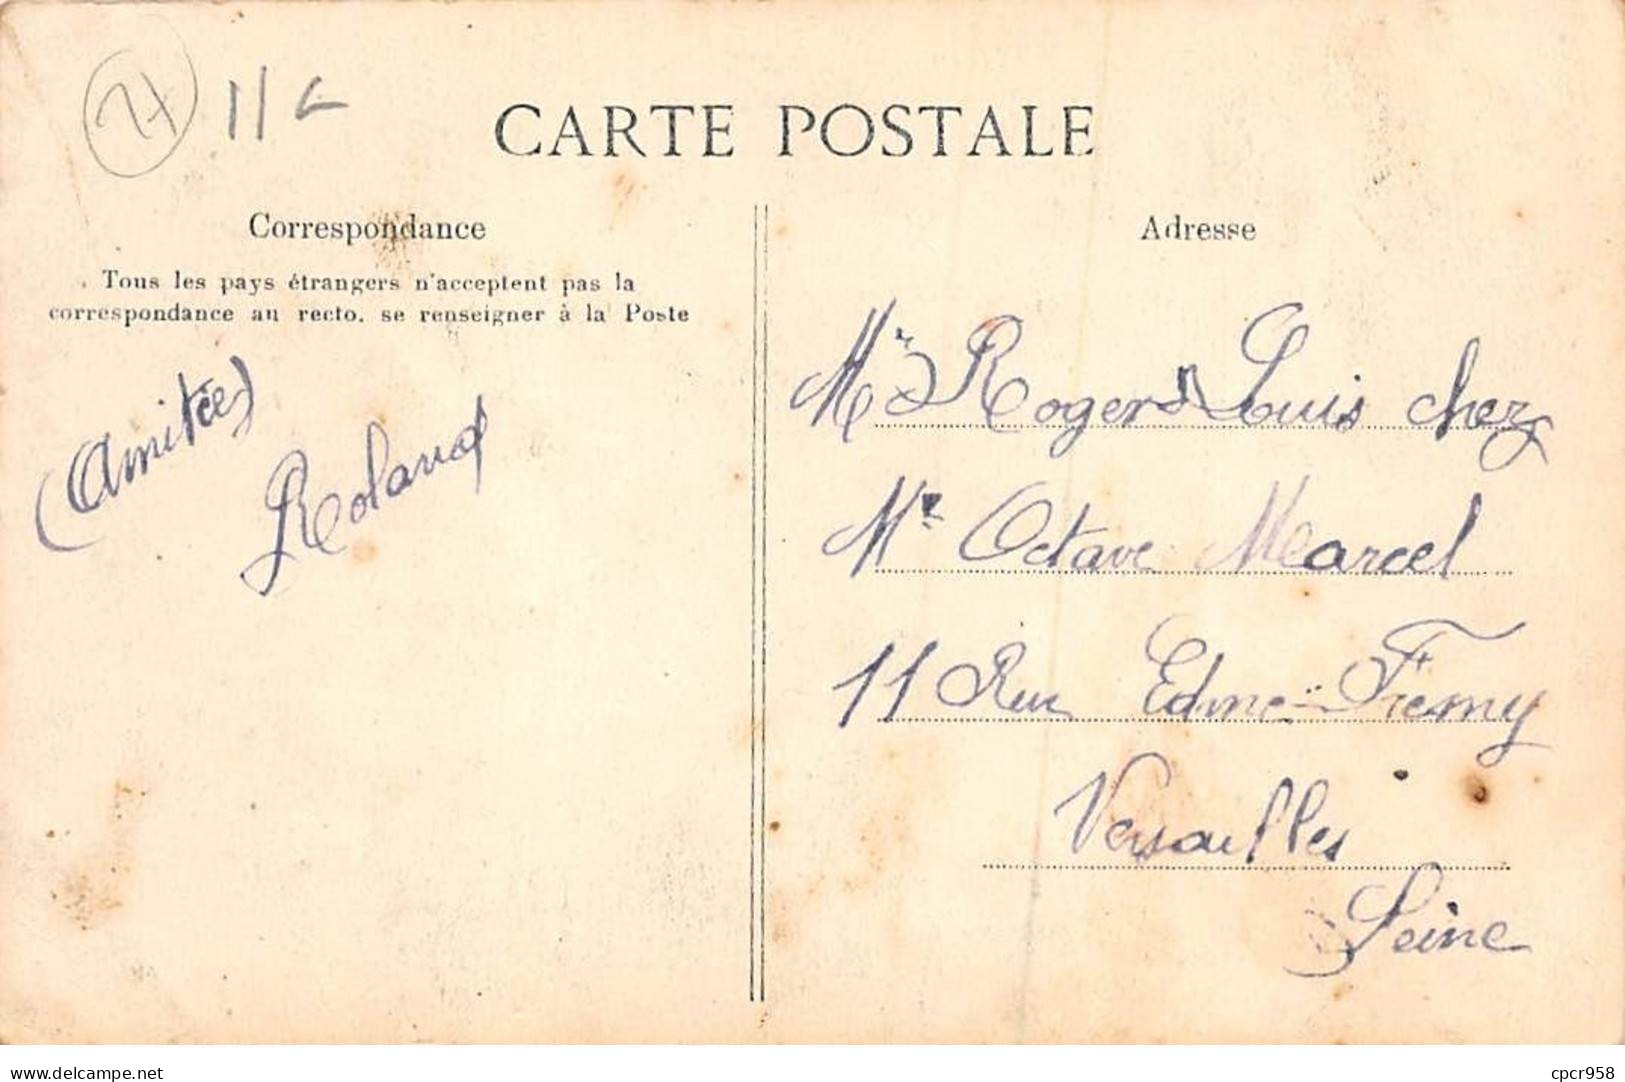 27
CARTE POSTALE
Correspondance
Tous les pays étrangers n'acceptent pas la
correspondance au recto. se renseigner à la Poste
Amitiés
Roland
Adresse
Roger Louis chez
Mr Octave Marcel
11 Rue Edme-Fremy
Versailles
Seine
www.delcampe.net
cpcr958